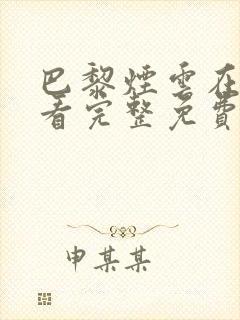 巴黎煙雲在
看完整免費
申某某